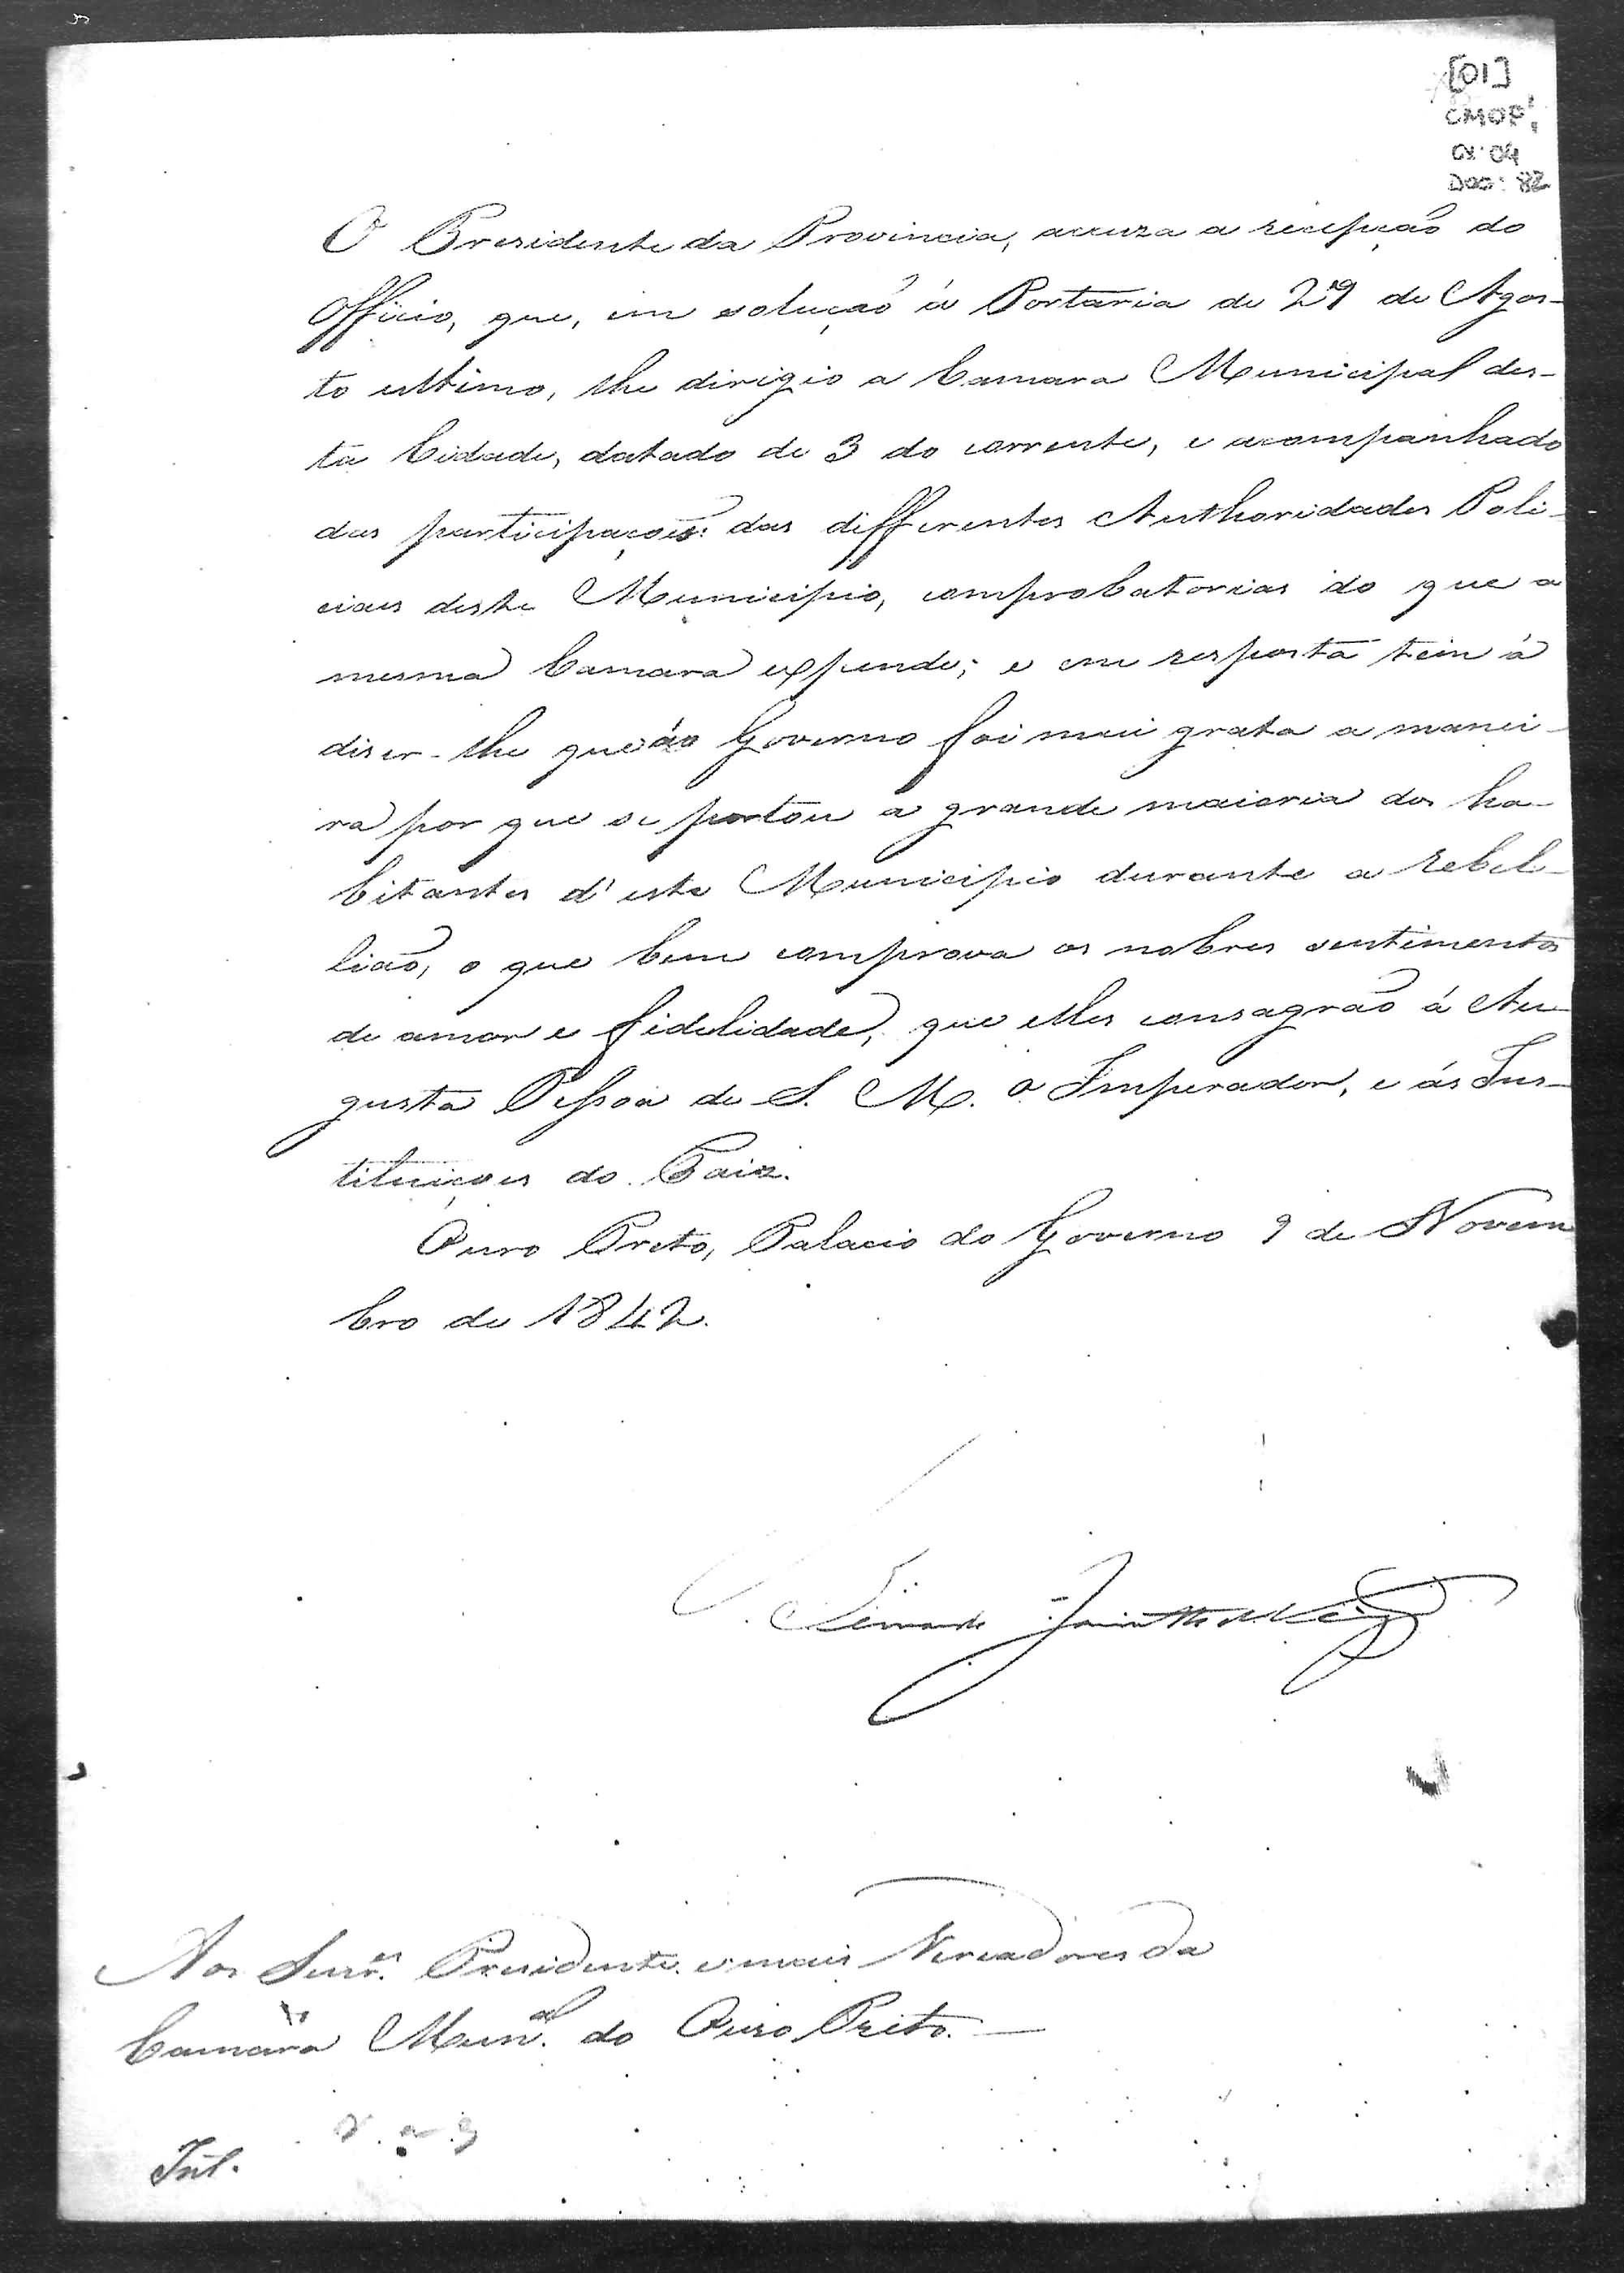 [01]
CMOP,
CX: 04
Doc: 82
O Presidente da Provincia, accuza a recepção do
Officio, que, em solução á Portaria de 29 de Agos-
to ultimo, lhe dirigio a Camara Municipal des-
ta Cidade, datado de 3 do corrente, e acompanhado
das participações das differentes Authoridades Poli-
ciaes deste Municipio, comprobatorias do que a
mesma Camara expende; e em resposta tem á
diser-lhe que ao Governo foi mui grata a manei-
ra por que se portou a grande maioria dos ha-
bitantes d'este Municipio durante a rebel-
lião, o que bem comprova os nobres sentimentos
de amor e fidelidade, que elles consagrão á Au-
gusta Pessoa de S. M. o Imperador, e ás Ins-
tituições do Paiz.
Ouro Preto, Palacio do Governo 9 de Novem
bro de 1842.
Bernardo Jacintho da Veiga
Aos Senr.es Presidente e mais Vereadores da
Camara Mun.al do Ouro Preto.